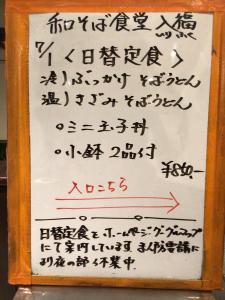 和そば食堂 入福
いり ふく
7/1 〈日替定食〉
冷)ぶっかけ そばうどん
温)きざみ そばうどん
○ミニ玉子丼
○小鉢 2品付
¥850.-
入口こちら
日替定食を ホームページ・グーグルマップ
にて案内しています
より夜の部 休業中